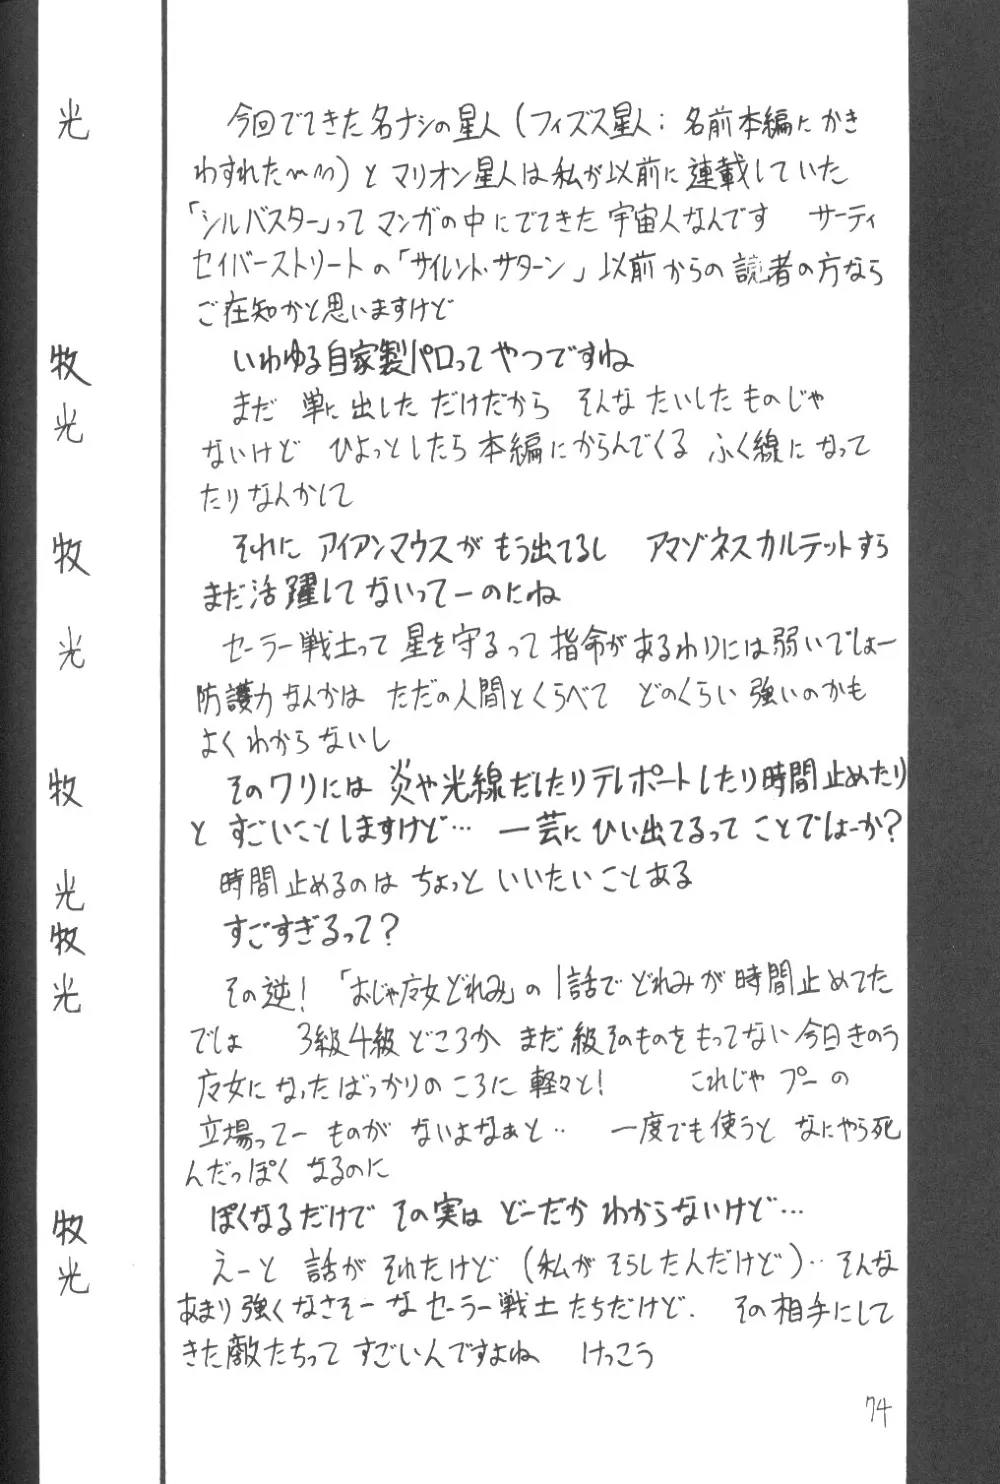 光　今回でてきた名ナシの星人（フィズス星人：名前本編にかき
わすれた〜）とマリオン星人は私が以前に連載していた
「シルバスター」ってマンガの中にでてきた宇宙人なんです　サーティ
セイバーストリートの「サイレント・サターン」以前からの読者の方なら
ご在知かと思いますけど
牧　いわゆる自家製パロってやつですね
光　まだ 単に出しただけだから そんなたいしたものじゃ
ないけど ひょっとしたら本編にからんでくる ふく線になって
たりなんかして
牧　それに アイアンマウスがもう出てるし アマゾネスカルテットすら
まだ活躍してないってーのにね
光　セーラー戦士って 星を守るって指命があるわりには弱いでしょー
防護力なんかは ただの人間とくらべて どのくらい強いのかも
よくわからないし
牧　そのワリには 炎や光線だしたりテレポートしたり時間止めたり
と すごいことしますけど… 一芸にひい出てるってことでしょーか？
光　時間止めるのは ちょっと いいたいことある
牧　すごすぎるって？
光　その逆！「おじゃ魔女どれみ」の1話でどれみが時間止めてた
では　3級4級どころか まだ級そのものをもってない今日きのう
魔女になったばっかりのころに 軽々と！　これじゃ プーの
立場ってー ものが ないよなぁと‥ 一度でも使うと なにやら死
んだっぽく なるのに
牧　ぽくなるだけで その実は どーだか わからないけど…
光　えーと 話が それたけど（私がそらしたんだけど）‥そんな
あまり強くなさそーなセーラー戦士たちだけど． その相手にして
きた敵たちって すごいんですよね　けっこう
74